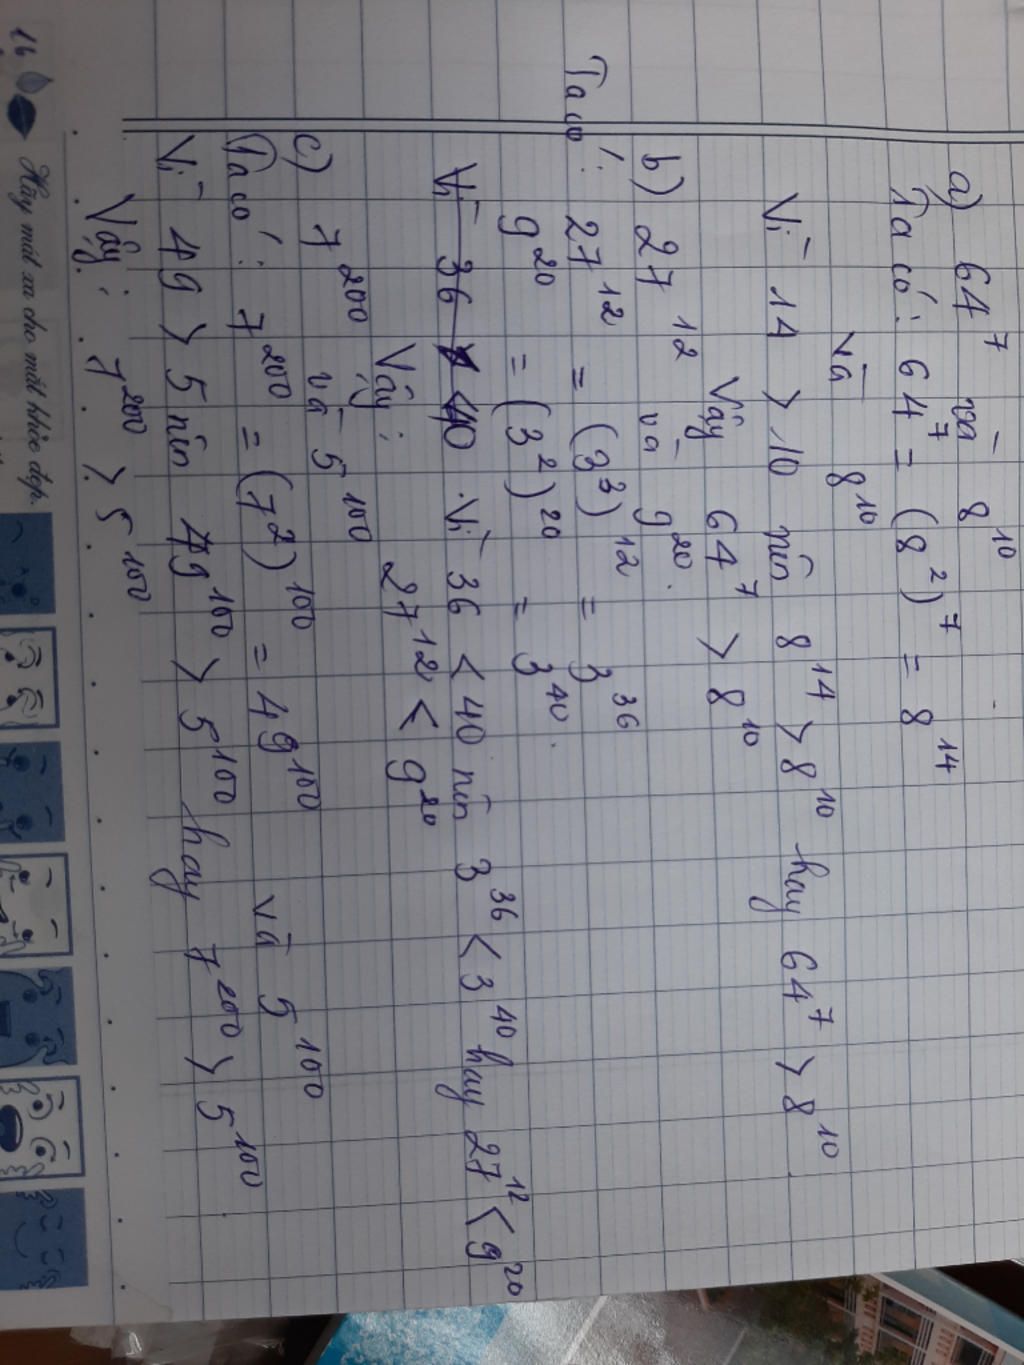 a) 64⁷ và 8¹⁰
Ta có: 64⁷ = (8²)⁷ = 8¹⁴
và 8¹⁰
Vì 14 > 10 nên 8¹⁴ > 8¹⁰ hay 64⁷ > 8¹⁰
Vậy 64⁷ > 8¹⁰
b) 27¹² và 9²⁰.
Ta có: 27¹² = (3³)¹² = 3³⁶
9²⁰ = (3²)²⁰ = 3⁴⁰.
Vì 36 < 40. Vì 36 < 40 nên 3³⁶ < 3⁴⁰ hay 27¹² < 9²⁰
Vậy: 27¹² < 9²⁰
c) 7²⁰⁰ và 5¹⁰⁰
Ta có: 7²⁰⁰ = (7²)¹⁰⁰ = 49¹⁰⁰ và 5¹⁰⁰
Vì 49 > 5 nên 49¹⁰⁰ > 5¹⁰⁰ hay 7²⁰⁰ > 5¹⁰⁰
Vậy: 7²⁰⁰ > 5¹⁰⁰
16 Hãy mát xa cho mắt khỏe đẹp.